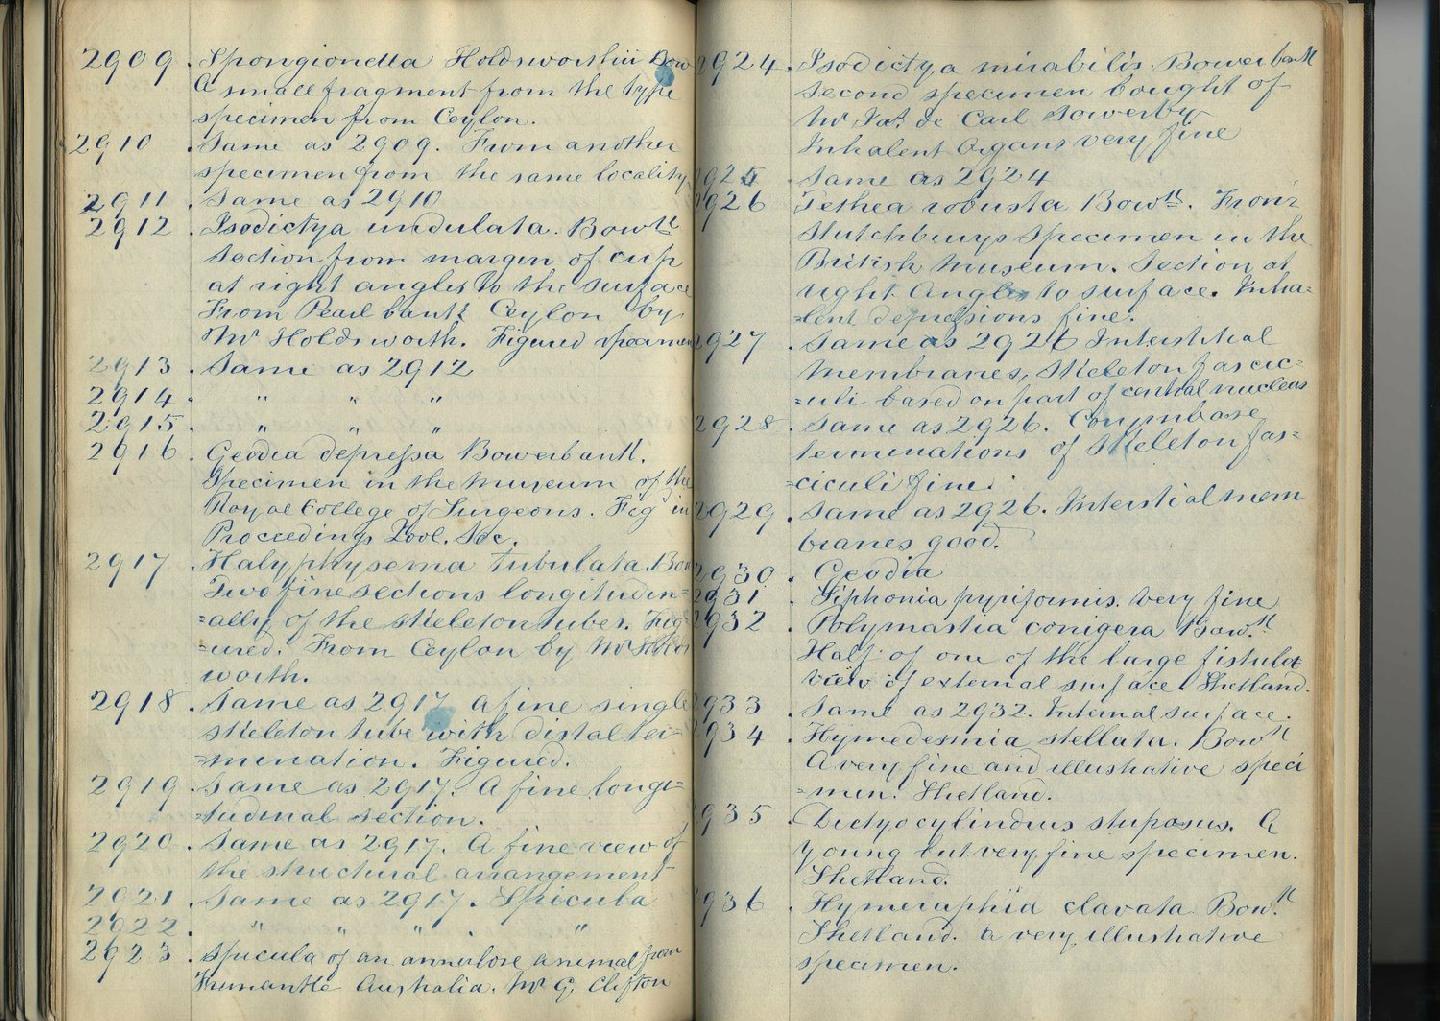 2909. Spongionella Holdsworthii Bow
A small fragment from the type
specimen from Ceylon.
2910. Same as 2909. From another
specimen from the same locality.
2911. Same as 2910
2912. Isodictya undulata. Bowbk
Section from margin of cup
at right angles to the surface
From Pearl bank Ceylon by
Mr Holdsworth. Figured specimen
2913. Same as 2912
2914. " " "
2915. " " "
2916. Geodia depressa Bowerbank.
Specimen in the Museum of the
Royal College of Surgeons. Figd in
Proceedings Zool. Soc.
2917. Halyphysema tubulata. Bow
Two fine sections longitudin=
=ally of the skeleton tubes. Fig=
=ured. From Ceylon by Mr Holds
worth.
2918. Same as 2917 a fine single
skeleton tube with distal ter=
=mination. Figured.
2919. Same as 2917. A fine longi=
=tudinal section.
2920. Same as 2917. A fine view of
the structural arrangement
2921. Same as 2917. Spicula
2922. " " " "
2923. Spicula of an annulose animal from
Fremantle Australia. Mr G. Clifton
2924. Isodictya mirabilis Bowerbank
second specimen bought of
Mr Jas. de Carl Sowerby
Inhalent Organs very fine
2925 Same as 2924
2926 Tethea robusta Bowbk. From
Stutchburys Specimen in the
British Museum. Section at
right Angles to surface. Inha=
=lent depressions fine.
2927. Same as 2926 Interstitial
Membranes, Skeleton fascic=
=uli based on part of central nucleus
2928. Same as 2926. Corymbose
terminations of Skeleton fas=
=ciculi fine.
2929. Same as 2926. Interstial mem
branes good.
2930. Geodia
2931. Siphonia pyriformis. Very fine
2932. Polymastia conigera Bowbk
Half of one of the large fistulae
view of external surface. Shetland.
2933. Same as 2932. Internal surface.
2934. Hymedesmia stellata. Bowbk
A very fine and illustrative speci
=men. Shetland.
2935. Dictyocylindrus stuposus. A
young but very fine specimen.
Shetland.
2936. Hymeraphia clavata Bowbk
Shetland. a very illustrative
specimen.